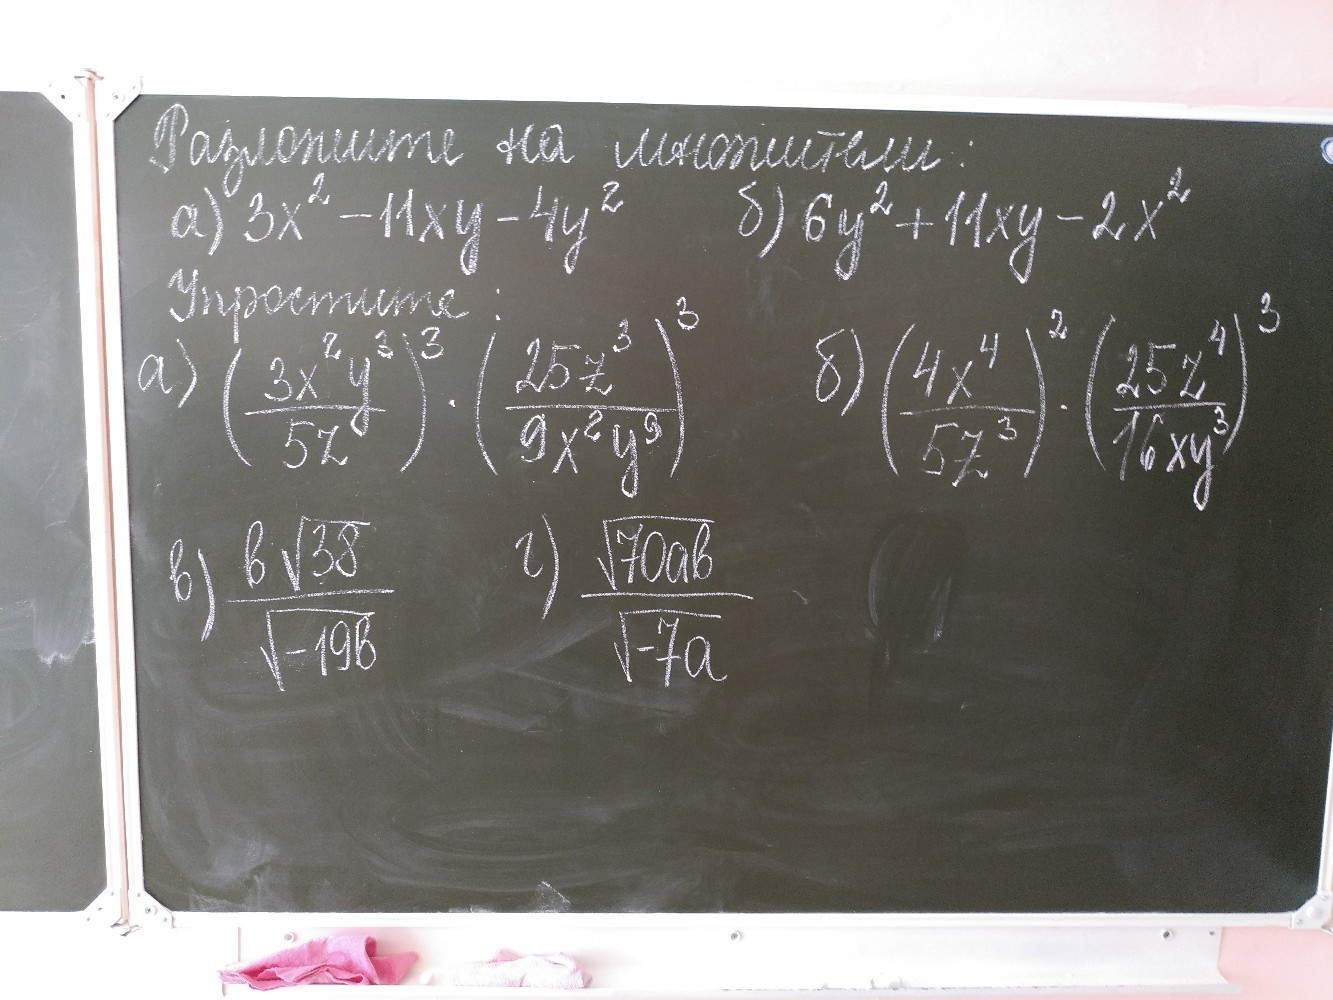 Разложите на множители:
а) 3x² − 11xy − 4y² б) 6y² + 11xy − 2x²
Упростите:
а) (3x²y³/5z)³ · (25z³/9x²y⁹)³ б) (4x⁴/5z³)² · (25z⁴/16xy³)³
в) b√38/√−19b г) √70ab/√−7a